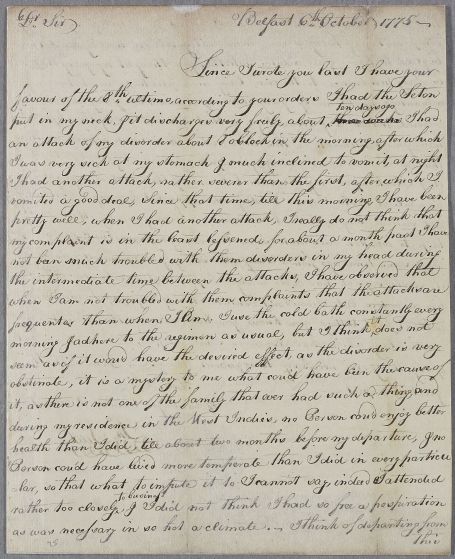 Dr. Sir Belfast 6th October 1775
Since I wrote you last I have your
favour of the 8th ultimo, according to your orders I had the Seton
put in my neck, & it discharges very freely, about ten days ago I had
an attack of my disorder about 8 o'clock in the morning, after which
I was very sick at my stomach & much inclined to vomit, at night
I had another attack, rather severer than the first, after which I
vomited a good deal, since that time, till this morning I have been
pretty well, when I had another attack, I really do not think that
my complaint is in the least lessened, for about a month past I have
not been much troubled with them disorders in my head during
the intermediate time between the attacks, I have observed that
when I am not troubled with them complaints that the attacks are
frequenter than when I am, I use the cold bath constantly every
morning & adhere to the regimen as usual, but I think it does not
seem as if it would have the desired effect, as the disorder is very
obstinate, it is a mystery to me what coud have been the cause of
it, as there is not one of the family that ever had such a thing, and
during my residence in the West Indies, no Person coud enjoy better
health than I did, till about two months before my departure, & no
Person coud have lived more temperate than I did in every particu
lar, so that what to impute it to I cannot say, indeed I attended
rather too closely to business, & I did not think I had so free a perspiration
as was necessary in so hot a climate. I think of departing from
this